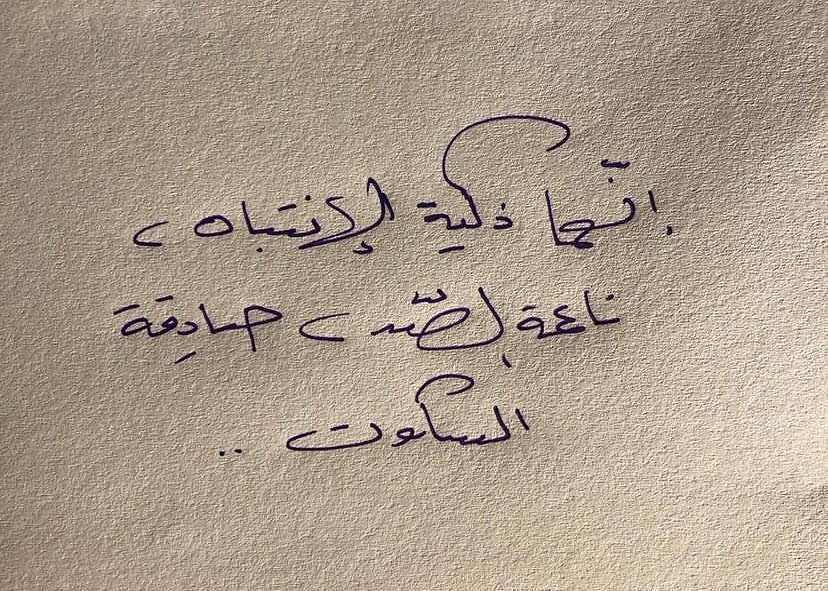 إنّها ذكية الإنتباه ،
ناعمة الصّد ، صادِقة
السكوت ..